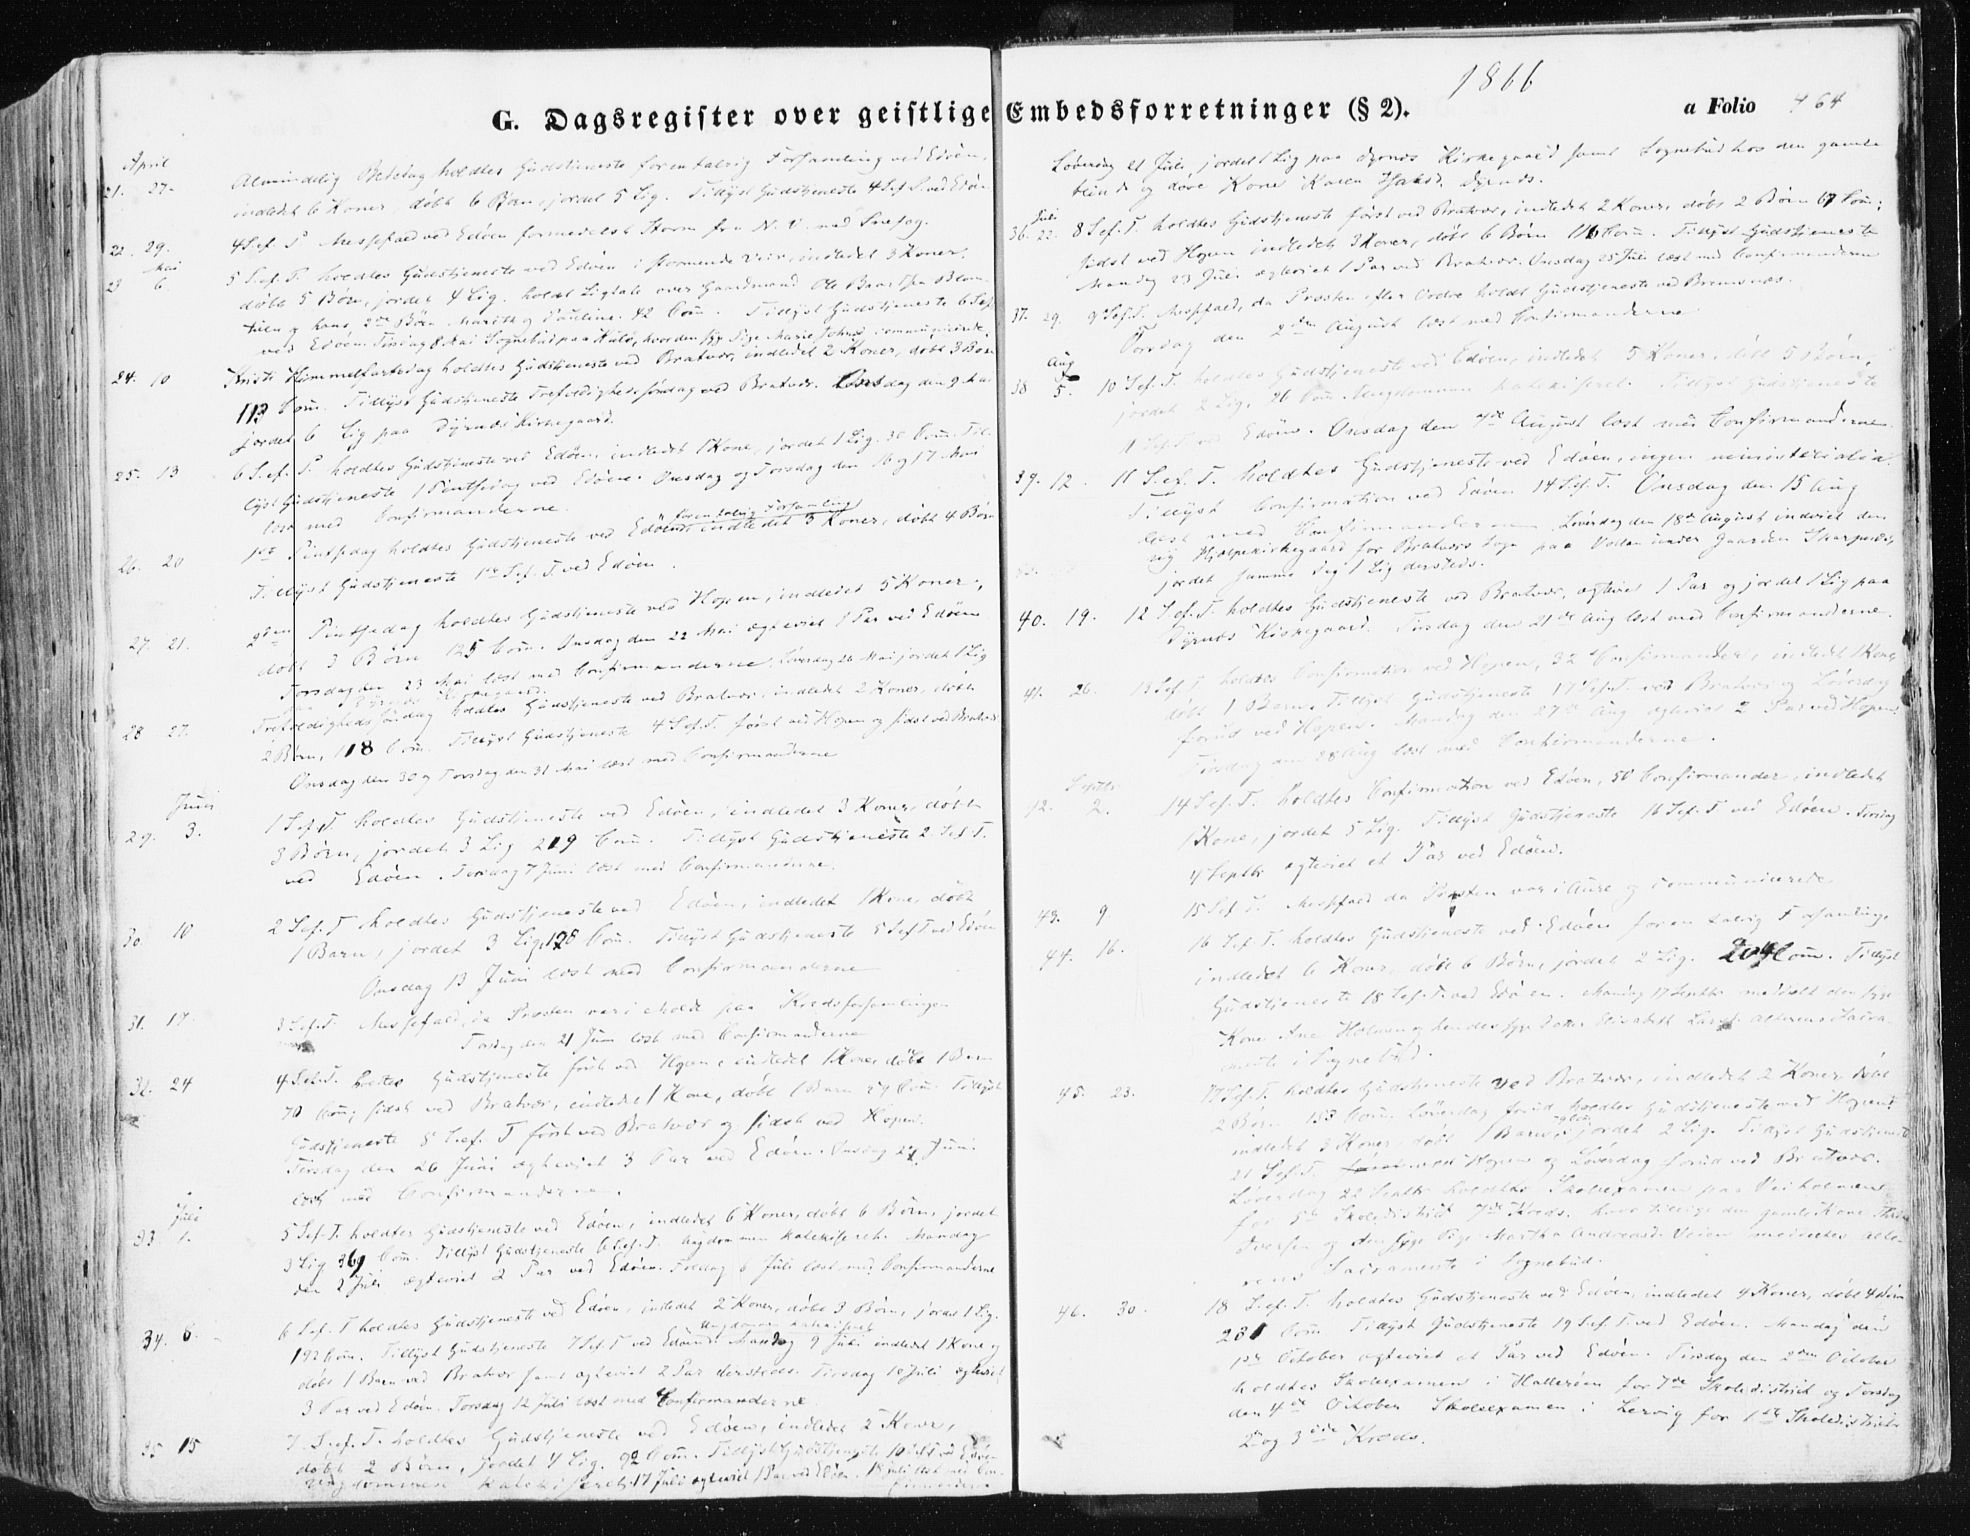 1866
G. Dagsregister over geistlige Embedsforretninger (§ 2).
a Folio 464
April
21. 27. Almindelig Bededag holdtes Gudstjeneste for en talrig Forsamling ved Edöen,
indledet 6 Koner, döbt 6 Börn, jordet 5 Lig. Tillyst Gudstjeneste 4 S. ef. P. ved Edöen
22. 29. 4 S. ef. P. Messefald ved Edöen formedelst Storm fra N. V. med Snefog.
Mai
23 6. 5 S. ef. P. holdtes Gudstjeneste ved Edöen i stormende Veir, indledet 3 Koner,
döbt 5 Börn, jordet 4 Lig. holdt Ligtale over Gaardmand Ole
og hans Börn Marith og Pauline. 42 Com. Tillyst Gudstjeneste 6 S. ef. P.
ved Edöen. Tirsdag 8 Mai Sognebud paa hvor den syge Pige Marie Johns communicerede.
24. 10 Kristi Himmelfartsdag holdtes Gudstjeneste ved Bratvær, indledet 2 Koner, döbt 3 Börn
113 Com. Tillyst Gudstjeneste Trefoldighedssöndag ved Bratvær. Onsdag den 9 Mai
jordet 6 Lig paa Dyrnæs Kirkegaard.
25. 13 6 S. ef. P. holdtes Gudstjeneste ved Edöen, indledet 1 Kone, jordet 1 Lig. 30 Com. Til-
lyst Gudstjeneste 1 Pintsedag ved Edöen. Onsdag og Torsdag den 16 og 17 Mai
læst med Confirmanderne.
26. 20 1ste Pintsedag holdtes Gudstjeneste ved Edöen for en talrig Forsamling, indledet 3 Koner, döbt 4 Börn
Tillyst Gudstjeneste 1ste S. ef. T. ved Edöen.
27. 21. 2den Pintsedag holdtes Gudstjeneste ved Hopen, indledet 5 Koner,
döbt 3 Börn 125 Com. Onsdag den 22 Mai ægteviet 1 Par ved Edöen
Torsdag den 23 Mai læst med Confirmanderne, Löverdag 26 Mai jordet 1 Lig
Dyrnæs Kirkegaard.
28 27. Trefoldighedssöndag holdtes Gudstjeneste ved Bratvær, indledet 2 Koner, döbt
2 Börn, 118 Com. Tillyst Gudstjeneste 4 S. ef. T. först ved Hopen og sidst ved Bratvær
Onsdag den 30 og Torsdag den 31 Mai læst med Confirmanderne
Juni
29. 3. 1 S. ef. T. holdtes Gudstjeneste ved Edöen, indledet 3 Koner, döbt
3 Börn, jordet 3 Lig 219 Com. Tillyst Gudstjeneste 2 S. ef. T.
ved Edöen. Torsdag 7 Juni læst med Confirmanderne.
30. 10 2 S. ef. T. holdtes Gudstjeneste ved Edöen, indledet 1 Kone, döbt
1 Barn, jordet 3 Lig, Com. Tillyst Gudstjeneste 5 S. ef. T. ved Edöen
Onsdag 13 Juni læst med Confirmanderne
31. 17. 3 S. ef. T. Messefald, da Præsten var i Molde paa Kredsforsamlingen
Torsdag den 21 Juni læst med Confirmanderne
32. 24 4 S. ef. T. holdtes Gudstjeneste först ved Hopen, indledet 1 Kone, döbt 1 Barn
70 Com; sidst ved Bratvær, indledet 1 Kone, döbt 1 Barn 24 Com. Tillyst
Gudstjeneste 8 S. ef. T. först ved Bratvær og sidst ved Hopen.
Tirsdag den 26 Juni ægteviet 3 Par ved Edöen. Onsdag 27 Juni
læst med Confirmanderne.
Juli
33 1. 5 S. ef. T. holdtes Gudstjeneste ved Edöen, indledet 6 Koner, döbt 6 Börn, jordet
3 Lig 369 Com. Tillyst Gudstjeneste 6 S. ef. T. Ungdommen katekiseret. Mandag
den 2 Juli ægteviet 2 Par ved Edöen. Fredag 6 Juli læst med Confirmanderne
34. 8. 6 S. ef. T. holdtes Gudstjeneste ved Edöen, indledet 2 Koner, döbt 3 Börn, jordet 1 Lig.
Ungdommen katekiseret
192 Com. Tillyst Gudstjeneste 7 S. ef. T. ved Edöen. Mandag 9 Juli indledet 1 Kone og
döbt 1 Barn ved Bratvær samt ægteviet 2 Par dersteds. Tirsdag 10 Juli ægteviet
3 Par ved Edöen. Torsdag 12 Juli læst med Confirmanderne.
35 15 7 S. ef. T. holdtes Gudstjeneste ved Edöen, indledet 2 Koner,
döbt 2 Börn, jordet 4 Lig. 92 Com. Tillyst Gudstjeneste 10 S. ef. T. ved Edöen
Ungdommen katekiseret. 17 Juli ægteviet 1 Par ved Edöen. 18 Juli læst med Con-
firmanderne
Löverdag 21 Juli, jordet 1 Lig paa Dyrnæs Kirkegaard samt Sognebud hos den gamle
blinde og döve Kone Karen Dyrnæs.
Juli
36. 22. 8 S. ef. T. holdtes Gudstjeneste först ved Bratvær, indledet 2 Koner, döbt 2 Börn 67 Com;
sidst ved Hopen indledet 3 Koner, döbt 6 Börn 116 Com. Tillyst Gudstjeneste
Mandag 23 Juli ægteviet 1 Par ved Bratvær. Onsdag 25 Juli læst med Confirmanderne
37. 29. 9 S. ef. T. Messefald, da Præsten efter Ordre holdt Gudstjeneste ved Bremsnæs.
Torsdag den 2den August læst med Confirmanderne
Aug
38 5. 10 S. ef. T. holdtes Gudstjeneste ved Edöen, indledet 5 Koner, döbt 5 Börn,
jordet 2 Lig, 26 Com. Ungdommen katekiseret. Tillyst Gudstjeneste
11 S. ef. T. ved Edöen. Onsdag den August læst med Confirmanderne
39. 12. 11 S. ef. T. holdtes Gudstjeneste ved Edöen, ingen ministerialia.
Tillyst Confirmation ved Edöen 14 S. ef. T. Onsdag den 15 Aug
læst med Confirmanderne. Löverdag den 18de August indviet den
ny Hjelpekirkegaard for Bratvær Sogn paa under Gaarden Skarpnæs,
jordet samme Dag 1 Lig dersteds.
40. 19. 12 S. ef. T. holdtes Gudstjeneste ved Bratvær, ægteviet 1 Par og jordet 1 Lig paa
Dyrnæs Kirkegaard. Tirsdag den 21de Aug læst med Confirmanderne
41. 26. 13 S. ef. T. holdtes Confirmation ved Hopen, 32 Confirmander, indledet 1 Kone,
döbt 1 Barn. Tillyst Gudstjeneste 17 S. ef. T. ved Bratvær og Löverdag
forud ved Hopen. Mandag den 27de Aug ægteviet 2 Par ved Hopen.
Tirsdag den 28 Aug læst med Confirmanderne.
Septbr
42. 2. 14 S. ef. T. holdtes Confirmation ved Edöen, 50 Confirmander, indledet
1 Kone, jordet 5 Lig. Tillyst Gudstjeneste 16 S. ef. T. ved Edöen. Tirsdag
4 Septbr ægteviet et Par ved Edöen.
43. 9 15 S. ef. T. Messefald da Præsten var i Aure og communicerede
44. 16. 16 S. ef. T. holdtes Gudstjeneste ved Edöen for en talrig Forsamling,
indledet 6 Koner, döbt 6 Börn, jordet 2 Lig. 204 Com. Tillyst
Gudstjeneste 18 S. ef. T. ved Edöen. Mandag 17 Septbr meddelt den syge
Kone Ane Holmen og hendes syge Datter Elisabeth Larsd. Alterens Sacra-
mente i Sognebud.
45. 23. 17 S. ef. T. holdtes Gudstjeneste ved Bratvær, indledet 2 Koner, döbt
2 Börn 153 Com. Löverdag forud holdtes Gudstjeneste ved Hopen,
indledet 3 Koner, döbt 1 Barn, jordet 2 Lig. Tillyst Gudstjeneste
21 S. ef. T. först ved Hopen og Löverdag forud ved Bratvær.
Löverdag 22 Septbr holdtes Skoleexamen paa Veiholmen
for 5te Skoledistrict 7de Kreds. hvor tillige den gamle Kone
Iversen og den syge Pige Martha Andreasd. Veien meddeltes Alte-
rens Sacramente i Sognebud.
46. 30. 18 S. ef. T. holdtes Gudstjeneste ved Edöen, indledet 4 Koner, döbt 4 Börn
231 Com Tillyst Gudstjeneste 19 S. ef. T. ved Edöen. Mandag den
1ste October ægteviet et Par ved Edöen. Tirsdag den 2den October
holdtes Skoleexamen i Halleröen for 7de Skoledistrict og Torsdag
den 4de October Skoleexamen i Lervig for 1ste Skoledistrict
2 og 3die Kreds.